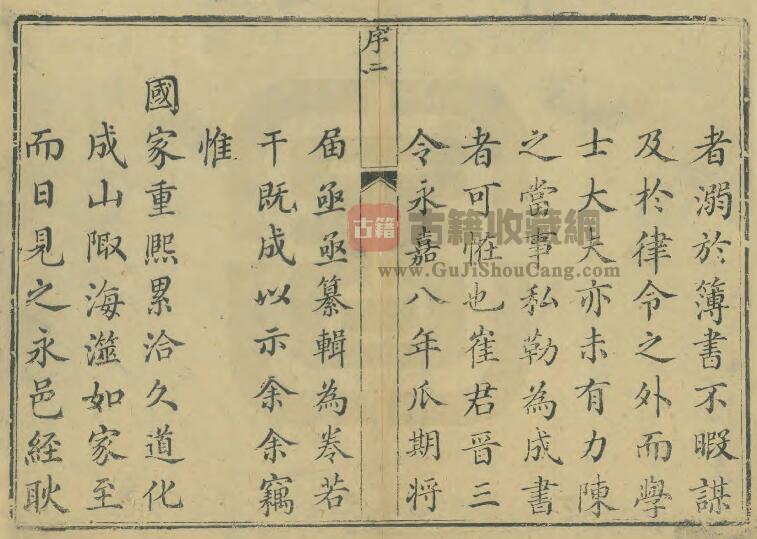 者溺於簿書不暇謀
及於律令之外而學
士大夫亦未有力陳
之當事私勒為成書
者可恠也崔君晋三
令永嘉八年爪期将
序二
届亟亟纂輯為卷若
干既成以示余余竊
惟
國家重熈累洽久道化
成山陬海澨如家至
而日見之永邑経耿
古籍
古籍收藏網
www.GuJiShouCang.com